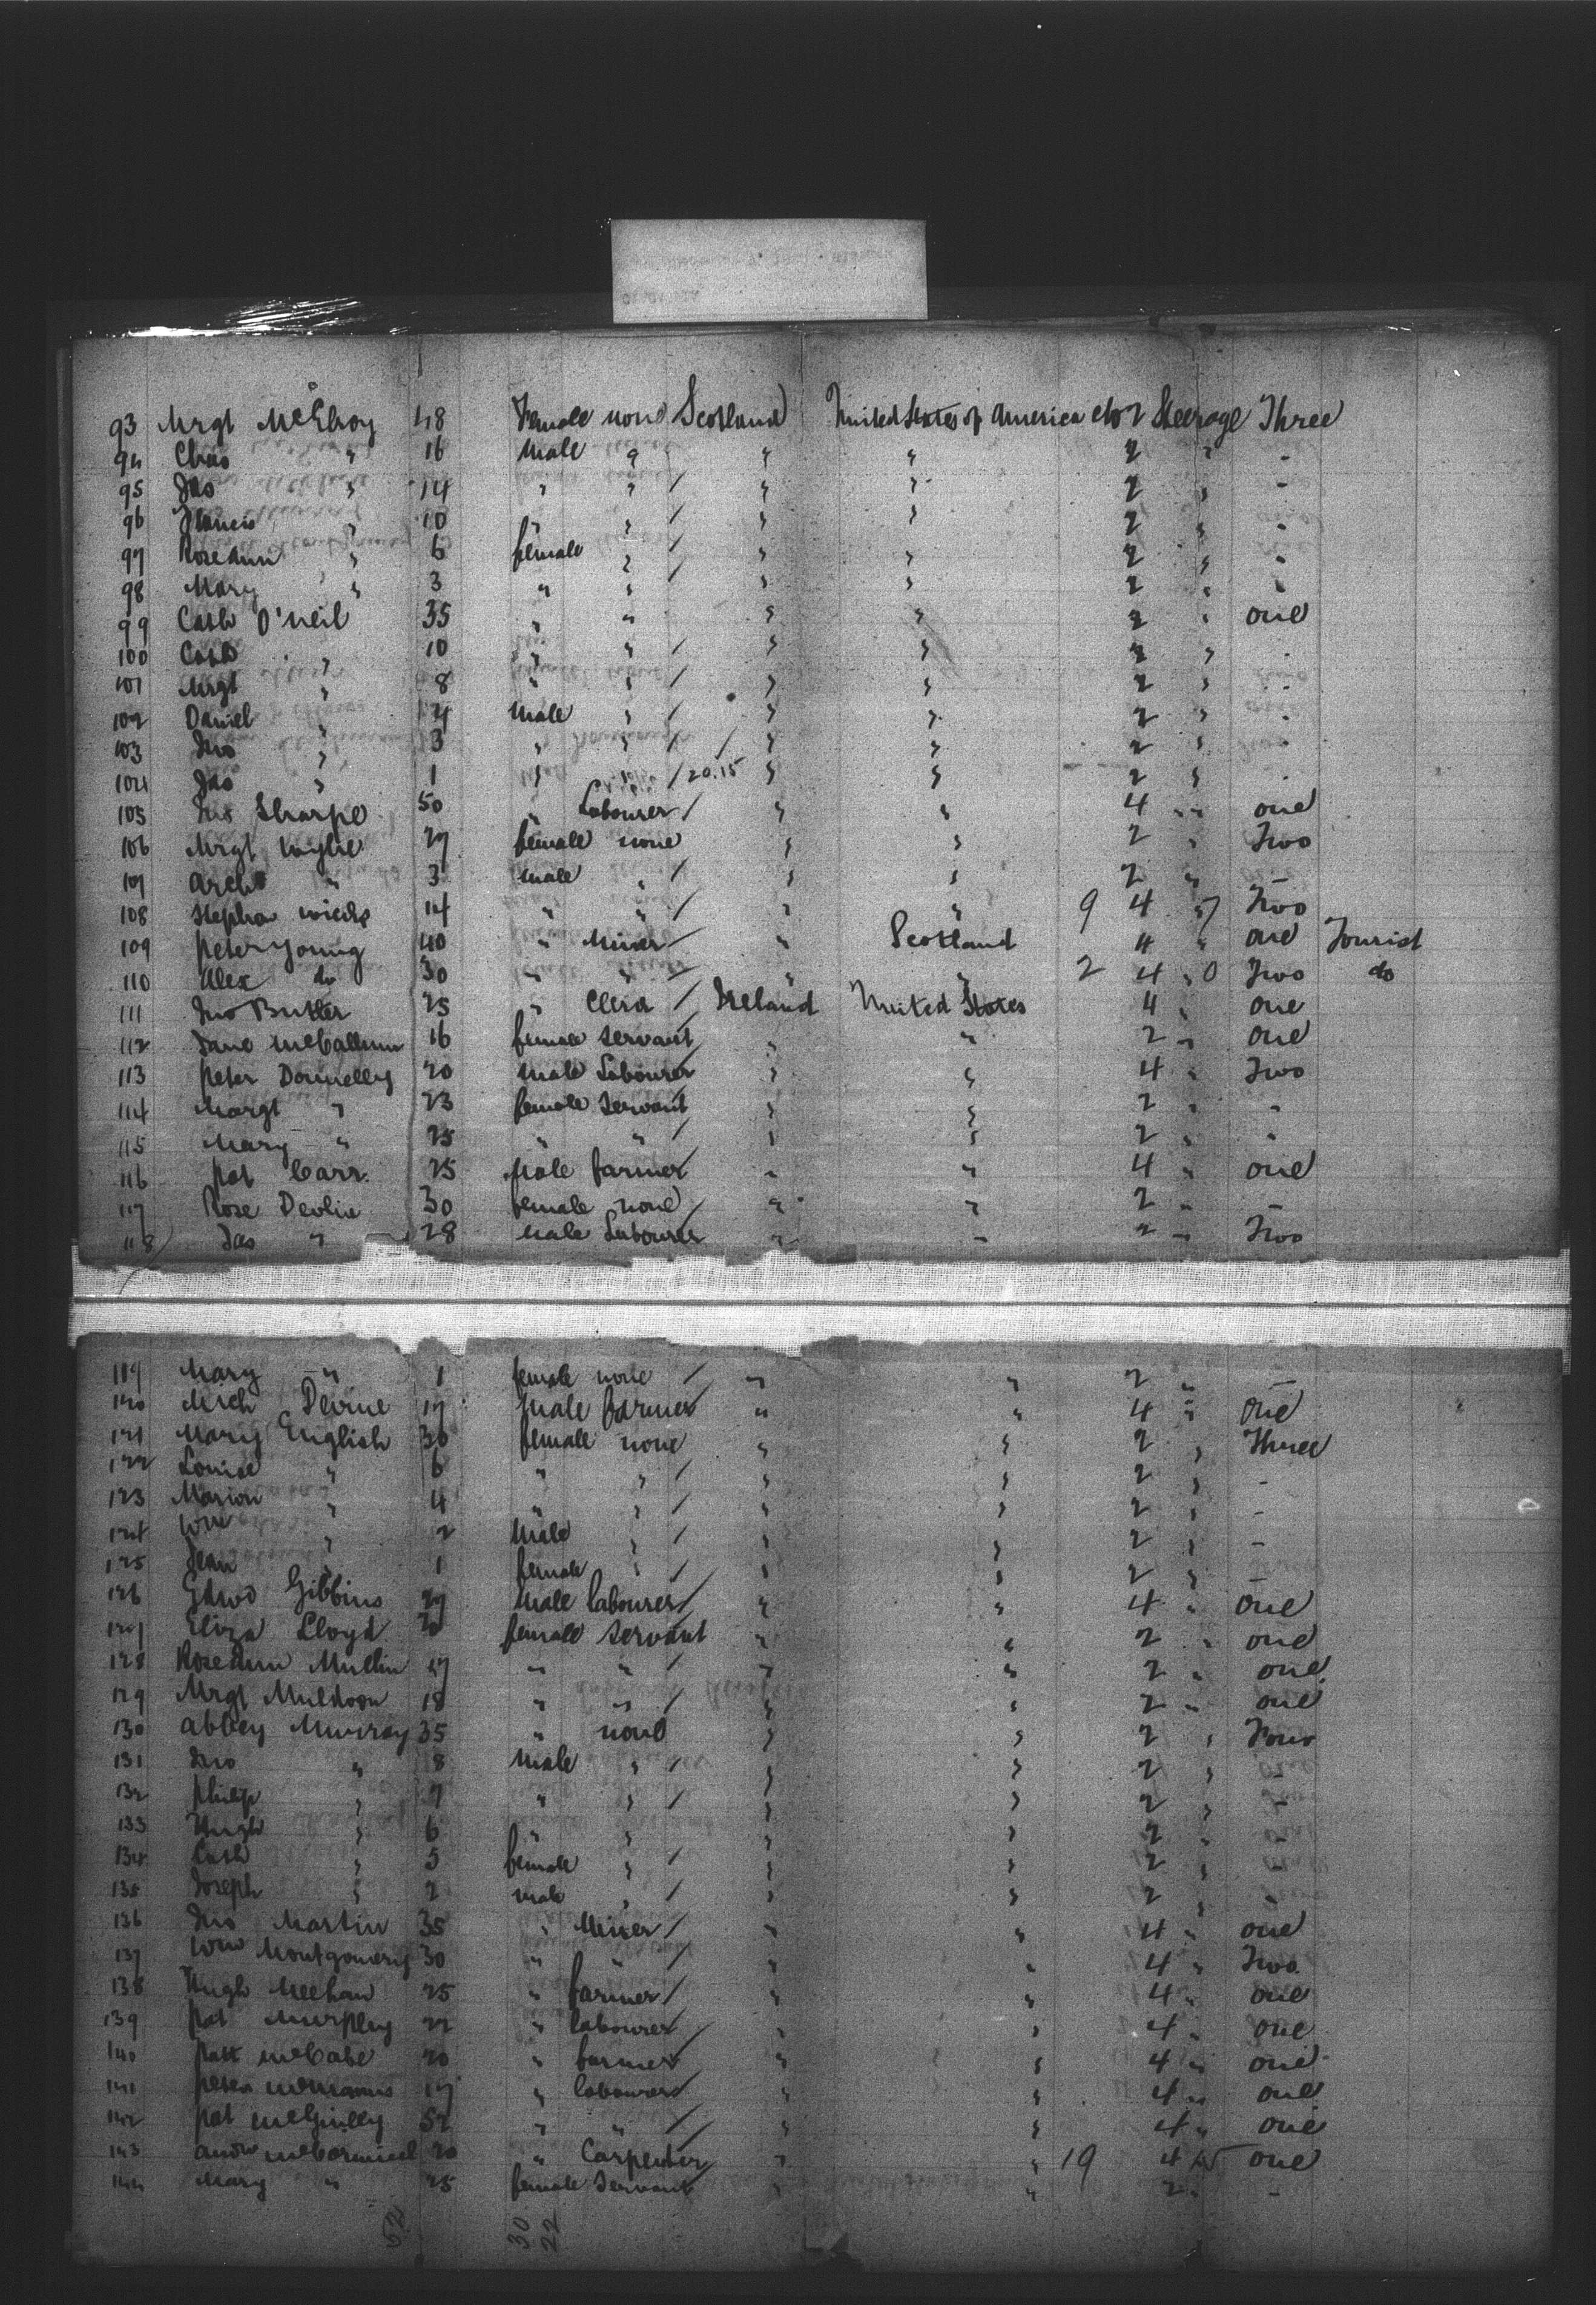 93 Mrgt McElroy 48 Female none Scotland United States of America No 2 Steerage Three
94 Chas " 16 Male " " " 2 " -
95 Jas " 14 " " / " " 2 " -
96 Francis " 10 " " / " " 2 " -
97 Roseann " 6 female " / " " 2 " -
98 Mary " 3 " " / " " 2 " -
99 Cath O'Neil 35 " " " " 2 " one
100 Cath " 10 " " / " " 2 " -
101 Mrgt " 8 " " / " " 2 " -
102 Daniel " 4 Male " / " " 2 " -
103 Jno " 3 " " / " " 2 " -
104 Jas " 1 " " / 20.15 " " 2 " -
105 Jno Sharpe 50 " Labourer / " " 4 " one
106 Mrgt Wylie 27 female none " " 2 " Two
107 Archd " 3 male " / " " 2 " -
108 Stephen 14 " " / " " 9 4 " 7 Two
109 Peter Young 40 " Miner / " Scotland 4 " one Tourist
110 Alex do 30 " " / " " 2 4 " 0 Two do
111 Jno Butler 25 " Clerk / Ireland United States 4 " one
112 Jane McCallum 16 female servant " " 2 " one
113 Peter Donnelly 20 male Labourer " " 4 " Two
114 Margt " 23 female Servant " " 2 " -
115 Mary " 25 " " / " " 2 " -
116 Pat Carr 25 Male farmer " " 4 " one
117 Rose Devlin 30 female none / " " 2 " -
118 Jas " 28 male Labourer " " 2 " Two
119 Mary " 1 female none / " " 2 " -
120 Mich Devine 17 Male farmer " " 4 " one
121 Mary English 30 female none " " 2 " Three
122 Louise " 6 " " / " " 2 " -
123 Marion " 4 " " / " " 2 " -
124 Wm " 2 Male " / " " 2 " -
125 Jean " 1 female " / " " 2 " -
126 Edwd Gibbins 27 Male labourer / " " 4 " one
127 Eliza Lloyd 20 female servant " " 2 " one
128 Roseann Mullin 17 " " / " " 2 " one
129 Mrgt Muldoon 18 " " / " " 2 " one
130 Abbey Murray 35 " none " " 2 " Four
131 Jno " 8 Male " / " " 2 " -
132 Philip " 7 " " / " " 2 " -
133 Hugh " 6 " " " " 2 " -
134 Cath " 5 female " / " " 2 " -
135 Joseph " 2 male " / " " 2 " -
136 Jno Martin 35 " Miner / " " 4 " one
137 Wm Montgomery 30 " " / " " 4 " Two
138 Hugh Meehan 25 " farmer / " " 4 " one
139 Pat Murphy 22 " labourer / " " 4 " one
140 Patk McCabe 20 " farmer " " 4 " one
141 Peter McManus 17 " labourer " " 4 " one
142 Pat 52 " " / " " 4 " one
143 Andw McCormick 20 " Carpenter " " 19 4 one
144 Mary " 25 female Servant " " 2 " -
52 30
22